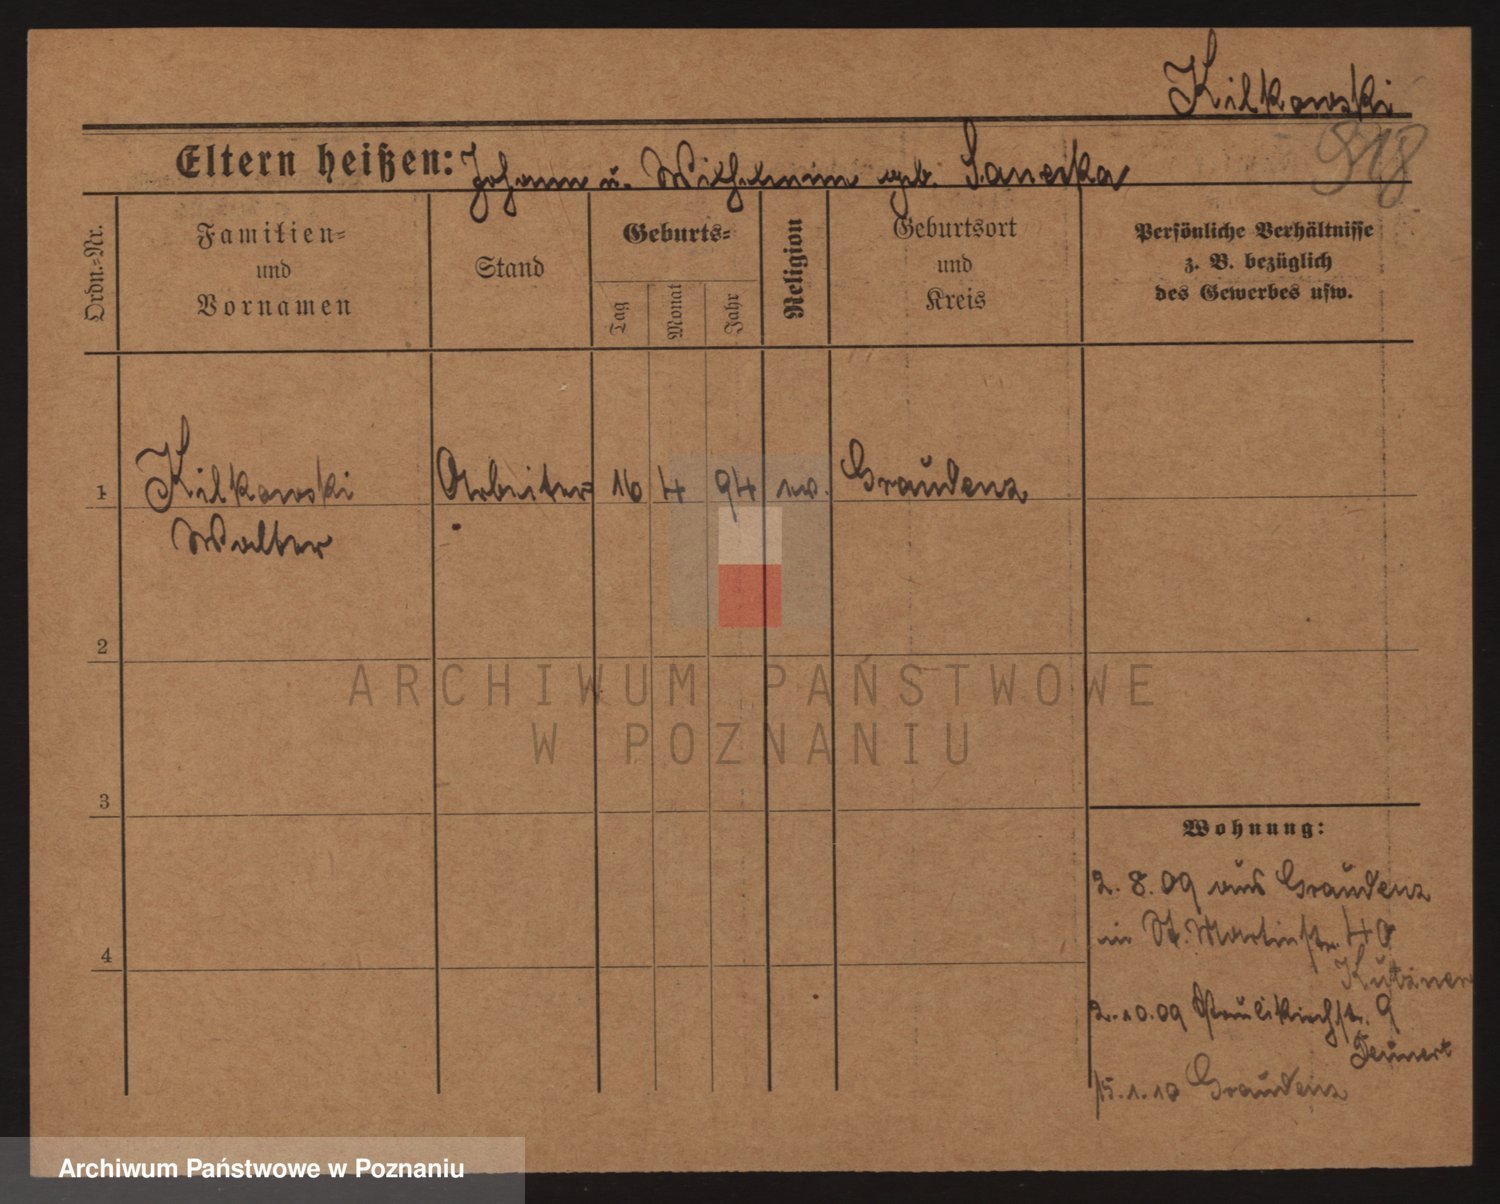 Kilkowski
Eltern heißen: Johann u. Wilhelmine geb. Saneska
Ordn.-Nr.
Familien-
und
Vornamen
Stand
Geburts-
Tag
Monat
Jahr
Religion
Geburtsort
und
Kreis
Persönliche Verhältnisse
z. B. bezüglich
des Gewerbes usw.
1 Kilkowski Arbeiter 16 4 94 ev. Graudenz
Walter
2
3
4
Wohnung:
2. 8. 09 aus Graudenz
in St. Martinstr. 40
Kutzner
2.10.09 Paulikirchstr. 9
Teunert
15.1.10 Graudenz
ARCHIWUM PAŃSTWOWE
W POZNANIU
Archiwum Państwowe w Poznaniu